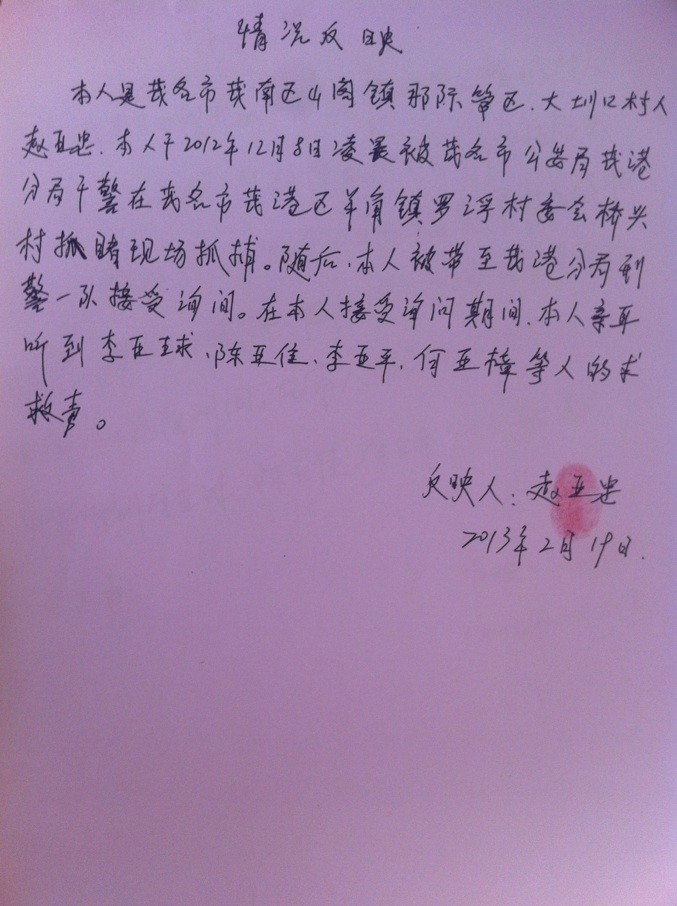 情况反映
本人是茂名市茂南区山阁镇那际管区,大圳口村人
赵亚忠.本人于2012年12月8日凌晨被茂名市公安局茂港
分局干警在茂名市茂港区羊角镇罗浮村委会桥头
村抓赌现场抓捕。随后,本人被带至茂港分局刑
警一队接受询问。在本人接受询问期间,本人亲耳
听到李亚球、陈亚佳、李亚平,何亚樟等人的求
救声。
反映人:赵亚忠
2013年2月19日.